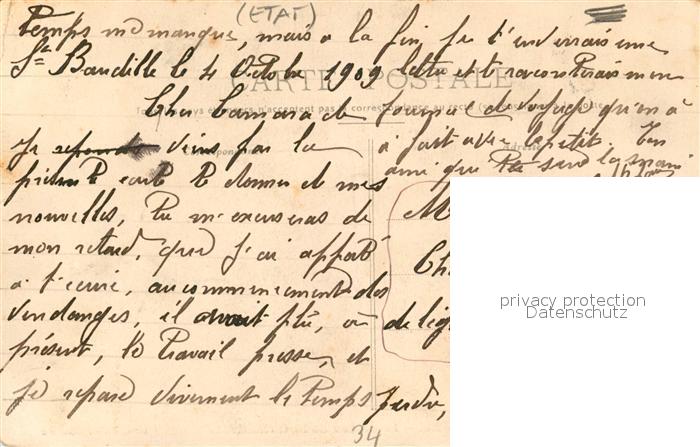 (ETAT)
temps me manque, mais a la fin, je t'enverrais une
St Baudille le 4 Octobre 1909 lettre et te raconterais une
CARTE POSTALE
Cher Camarade journée de voyage qu'on a
Je viens par la à fait avec le petit. Ton
présente carte te donner et mes ami qui te serre la main
nouvelles, tu m'excuseras de
mon retard, que j'ai apporté Ch
a t'écrire, au commencement des
vendanges, il avait plu, à de lég
présent, le travail presse, et
je repare vivement le temps perdu,
34
privacy protection
Datenschutz